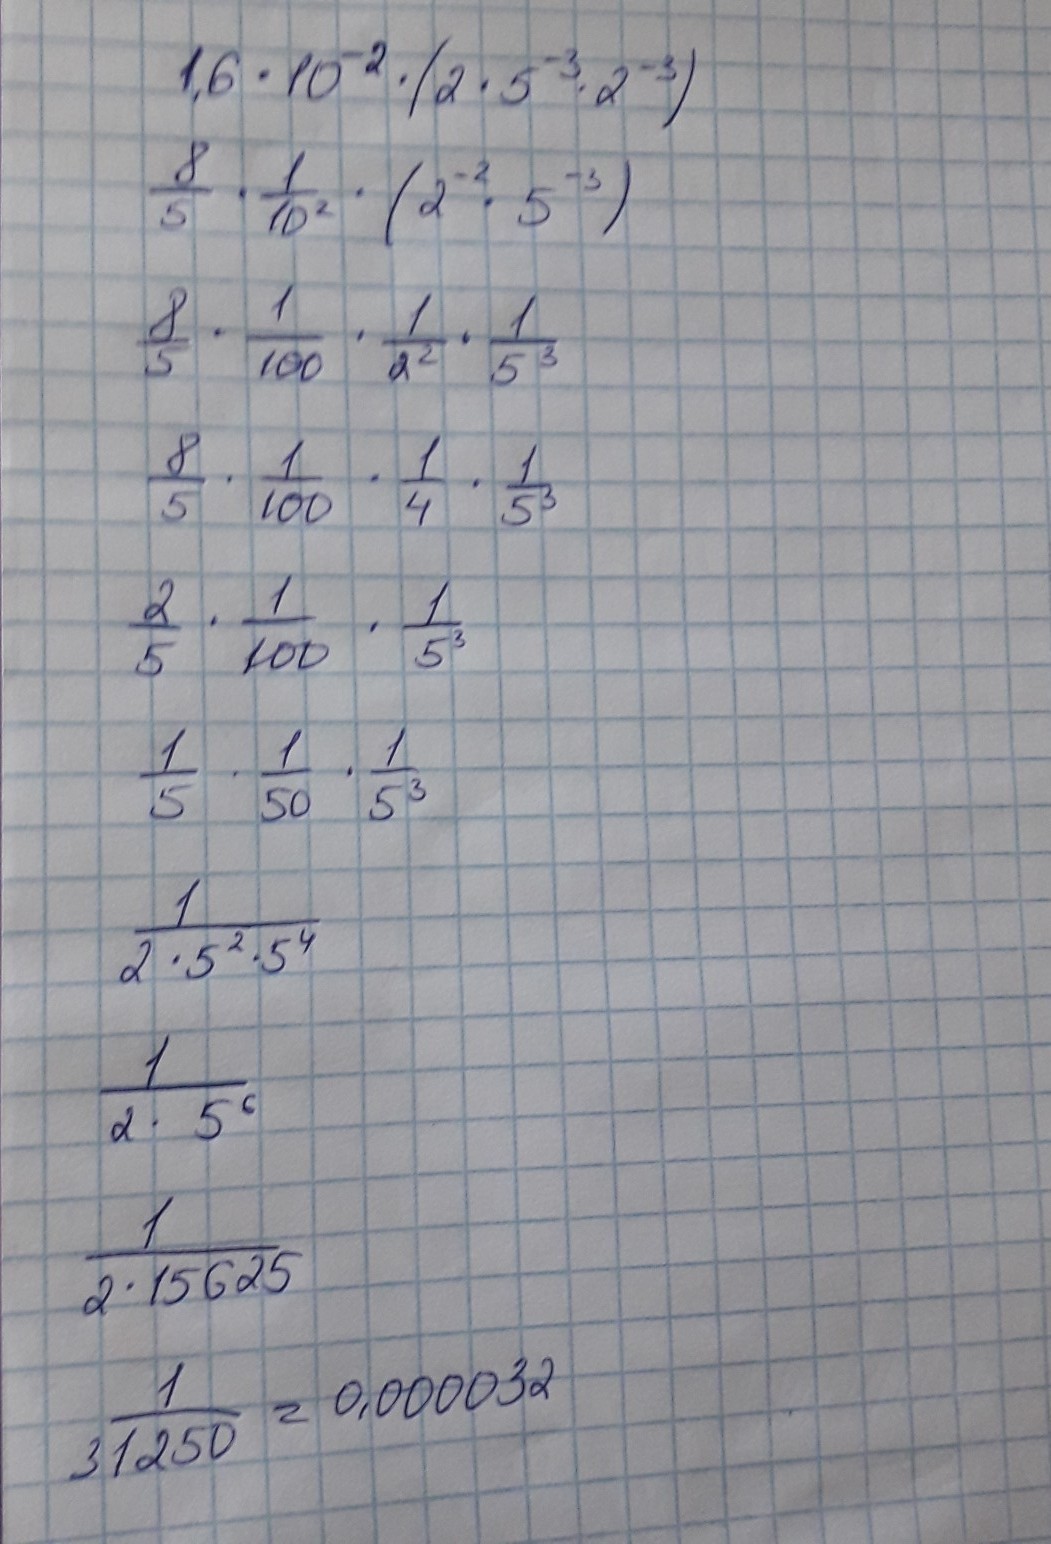 1,6 · 10⁻² · (2 · 5⁻³ · 2⁻³)
8/5 · 1/10² · (2⁻² · 5⁻³)
8/5 · 1/100 · 1/2² · 1/5³
8/5 · 1/100 · 1/4 · 1/5³
2/5 · 1/100 · 1/5³
1/5 · 1/50 · 1/5³
1/(2 · 5² · 5⁴)
1/(2 · 5⁶)
1/(2 · 15625)
1/31250 = 0,000032